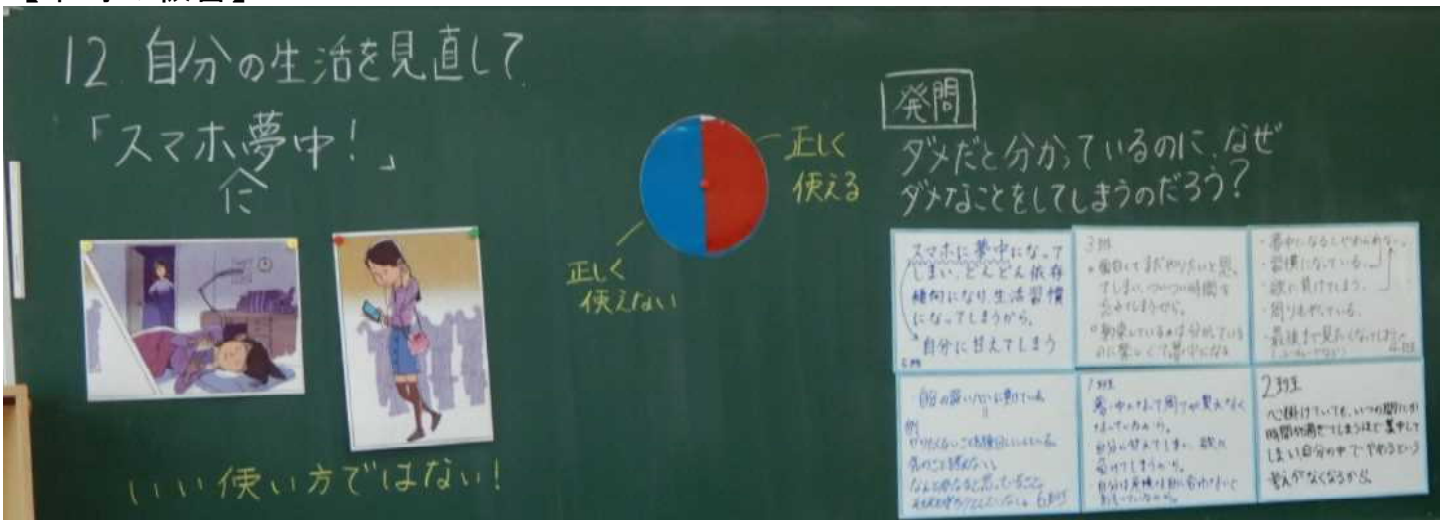 12 自分の生活を見直して
「スマホ夢中!」
に
いい使い方ではない!
正しく
使える
正しく
使えない
発問
ダメだと分かっているのに、なぜ
ダメなことをしてしまうのだろう?
スマホに夢中になって
しまい、どんどん依存
傾向になり、生活習慣
になってしまうから。
自分に甘えてしまう
5班
3班
面白くてまだやりたいと思っ
てしまい、ついつい時間を
忘れてしまうから。
・夢中になるとやめられない。
・習慣になっている。
・欲に負けてしまう。
・周りもやっている。
・最後まで見たくなってしまう
4班
自分の弱い心に負けている
例
6班
1班
夢中になって周りが見えなく
なっているから。
自分に甘えてしまい、欲に
負けてしまうから。
2班
心掛けていても、いつの間にか
時間が過ぎてしまうほど集中して
しまい自分の中でやめるという
考えがなくなるから。